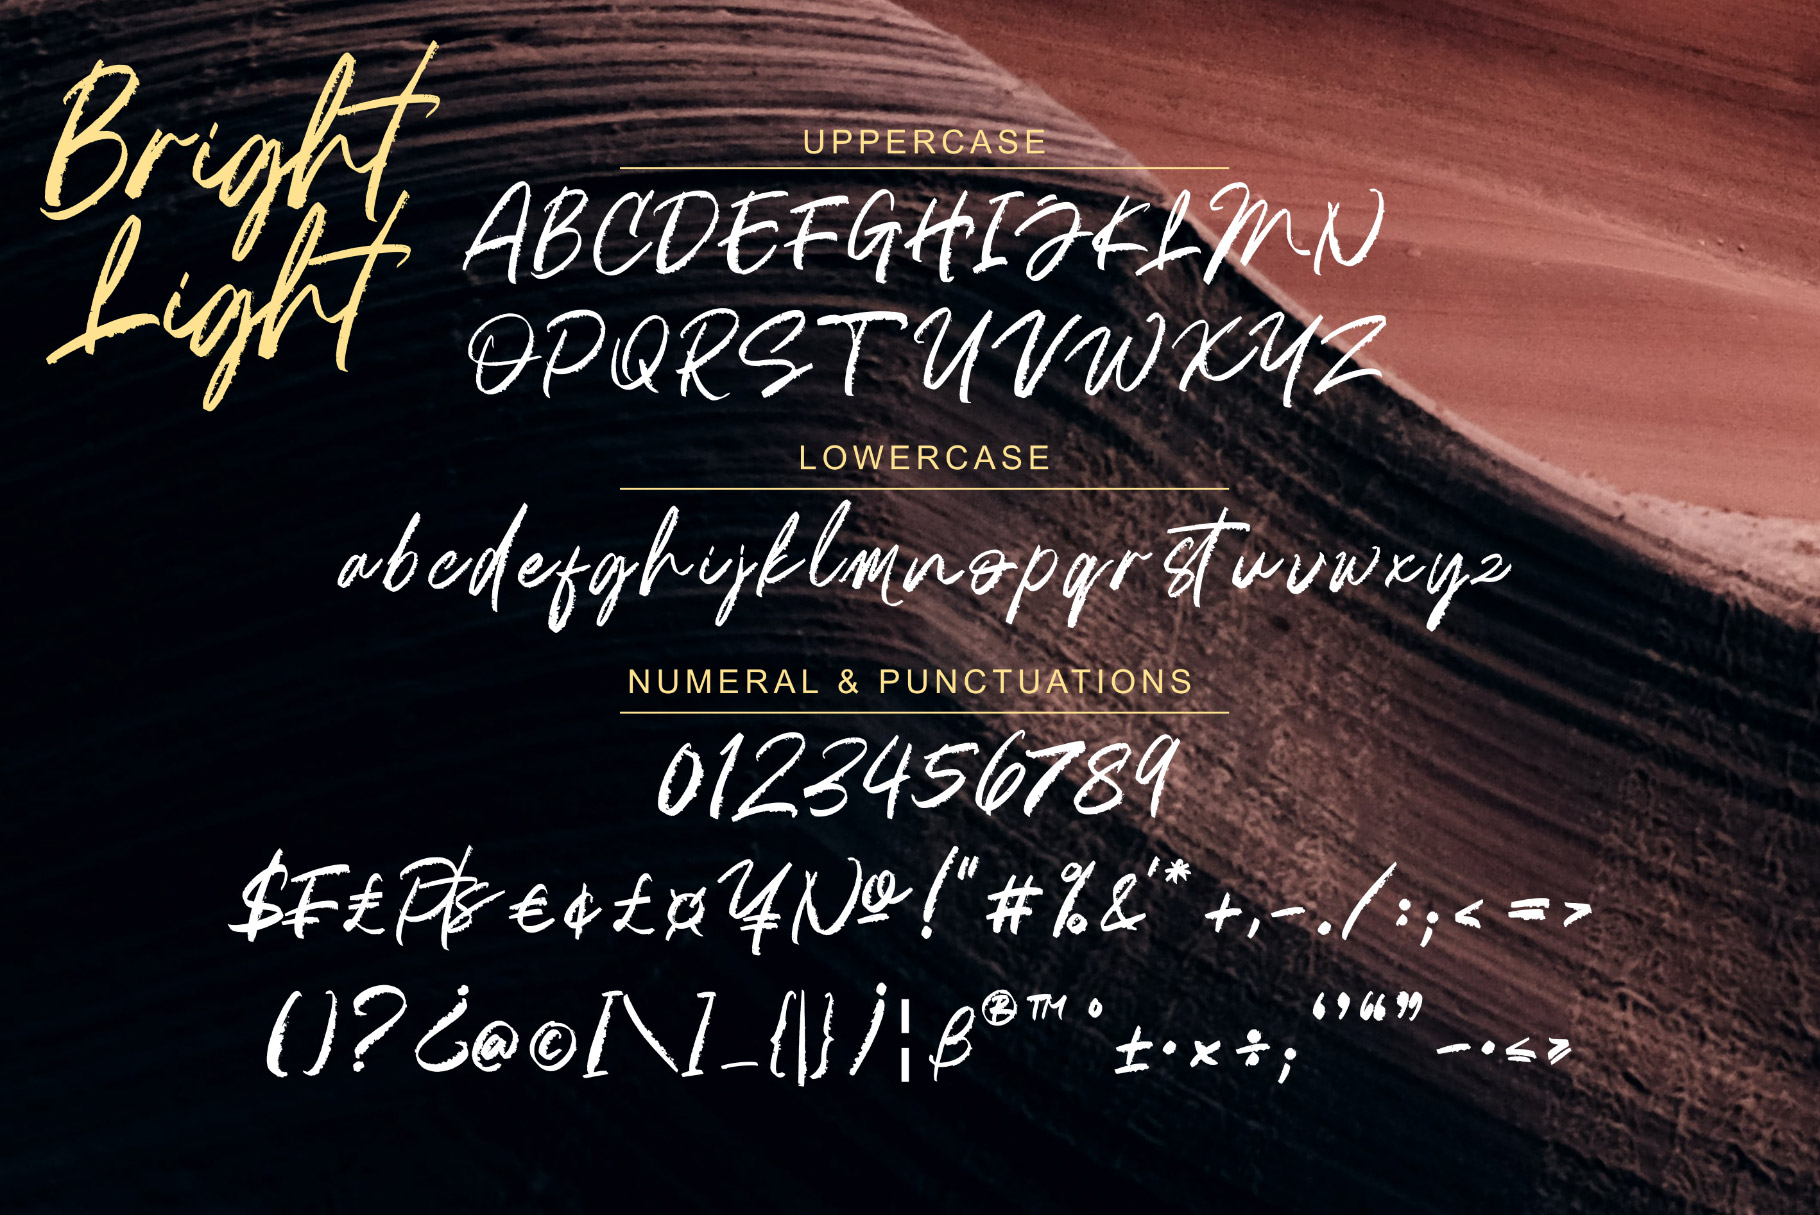 Bright
Light
UPPERCASE
ABCDEFGHIJKLMN
OPQRSTUVWXYZ
LOWERCASE
abcdefghijklmnopqrstuvwxyz
NUMERAL & PUNCTUATIONS
0123456789
$₣₤₧€¢£¤¥№!"#%&'*+,-./:;<=>
()?¿@©[\]_{|}¡¦ß®™°±·×÷;‘’“”–•≤≥